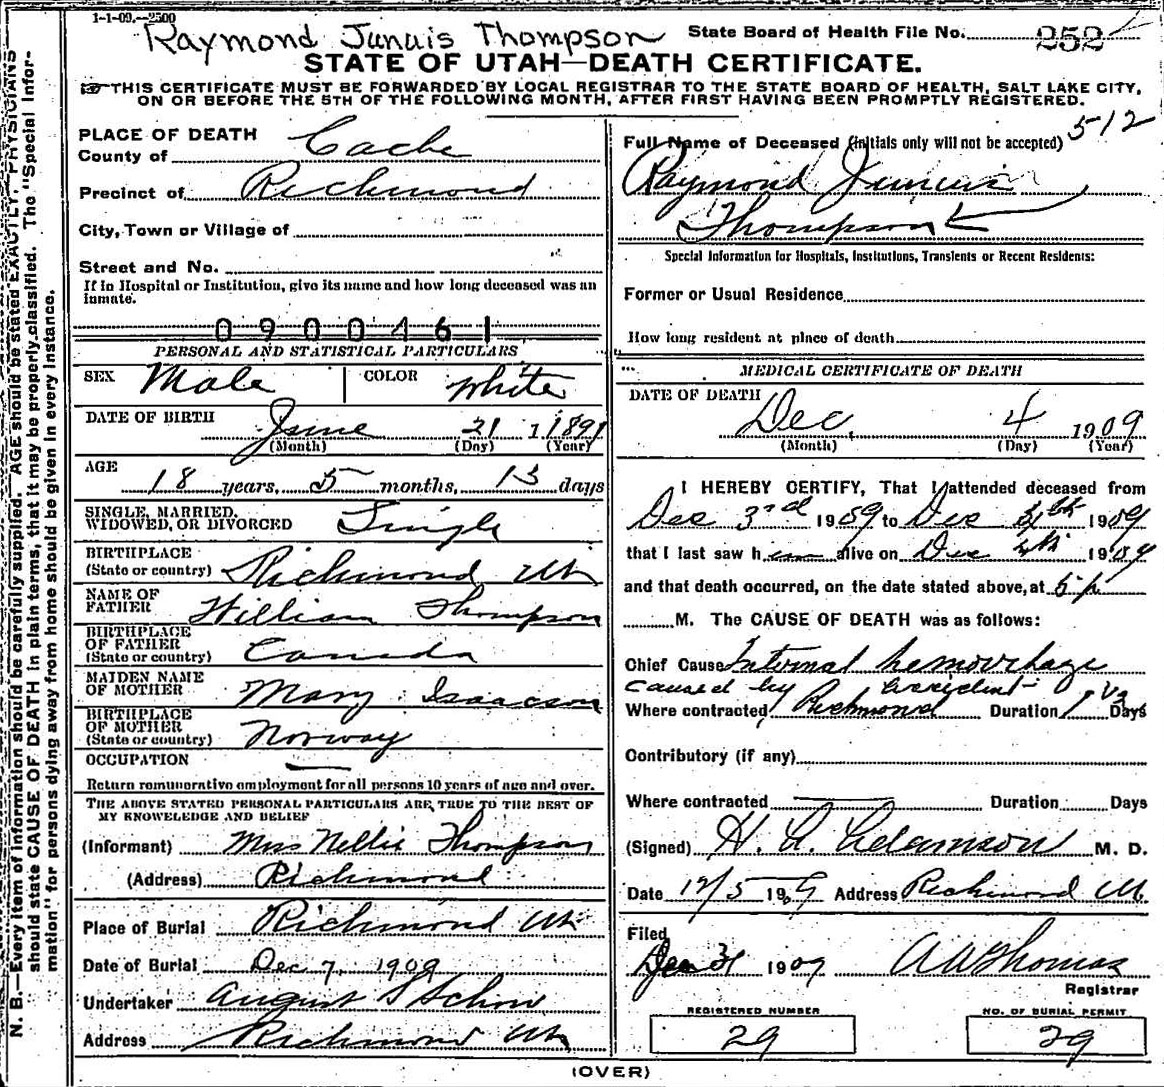 1-1-09.--2500
Raymond Junuis Thompson
State Board of Health File No. 252
STATE OF UTAH—DEATH CERTIFICATE.
THIS CERTIFICATE MUST BE FORWARDED BY LOCAL REGISTRAR TO THE STATE BOARD OF HEALTH, SALT LAKE CITY,
ON OR BEFORE THE 5TH OF THE FOLLOWING MONTH, AFTER FIRST HAVING BEEN PROMPTLY REGISTERED.
N. B.—Every item of information should be carefully supplied. AGE should be stated EXACTLY. PHYSICIANS
should state CAUSE OF DEATH in plain terms, that it may be properly classified. The "Special Infor-
mation" for persons dying away from home should be given in every instance.
PLACE OF DEATH
County of Cache
Precinct of Richmond
City, Town or Village of
Street and No.
If in Hospital or Institution, give its name and how long deceased was an
inmate.
0900461
PERSONAL AND STATISTICAL PARTICULARS
SEX Male COLOR White
DATE OF BIRTH June 21 1 1891
(Month) (Day) (Year)
AGE
18 years, 5 months, 13 days
SINGLE, MARRIED,
WIDOWED, OR DIVORCED Single
BIRTHPLACE
(State or country) Richmond Ut
NAME OF
FATHER William Thompson
BIRTHPLACE
OF FATHER
(State or country) Canada
MAIDEN NAME
OF MOTHER Mary Isaacson
BIRTHPLACE
OF MOTHER
(State or country) Norway
OCCUPATION
Return remunerative employment for all persons 10 years of age and over.
THE ABOVE STATED PERSONAL PARTICULARS ARE TRUE TO THE BEST OF
MY KNOWELEDGE AND BELIEF
(Informant) Miss Nellie Thompson
(Address) Richmond
Place of Burial Richmond Ut
Date of Burial Dec 7, 1909
Undertaker August S Schow
Address Richmond Ut
512
Full Name of Deceased (initials only will not be accepted)
Raymond Junuis
Thompson
Special Information for Hospitals, Institutions, Transients or Recent Residents:
Former or Usual Residence
How long resident at place of death
MEDICAL CERTIFICATE OF DEATH
DATE OF DEATH
Dec, 4 1909
(Month) (Day) (Year)
I HEREBY CERTIFY, That I attended deceased from
Dec 3rd 1909 to Dec 4th 1909
that I last saw him alive on Dec 4th 1909
and that death occurred, on the date stated above, at 5 p
M. The CAUSE OF DEATH was as follows:
Chief Cause Internal hemorrhage
caused by accident
Where contracted Richmond Duration Days
Contributory (if any)
Where contracted Duration Days
(Signed) H. L. Adamson M. D.
Date 12/5 1909 Address Richmond Ut.
Filed
31 1909 A W Thomas
Registrar
REGISTERED NUMBER
29
NO. OF BURIAL PERMIT
29
(OVER)